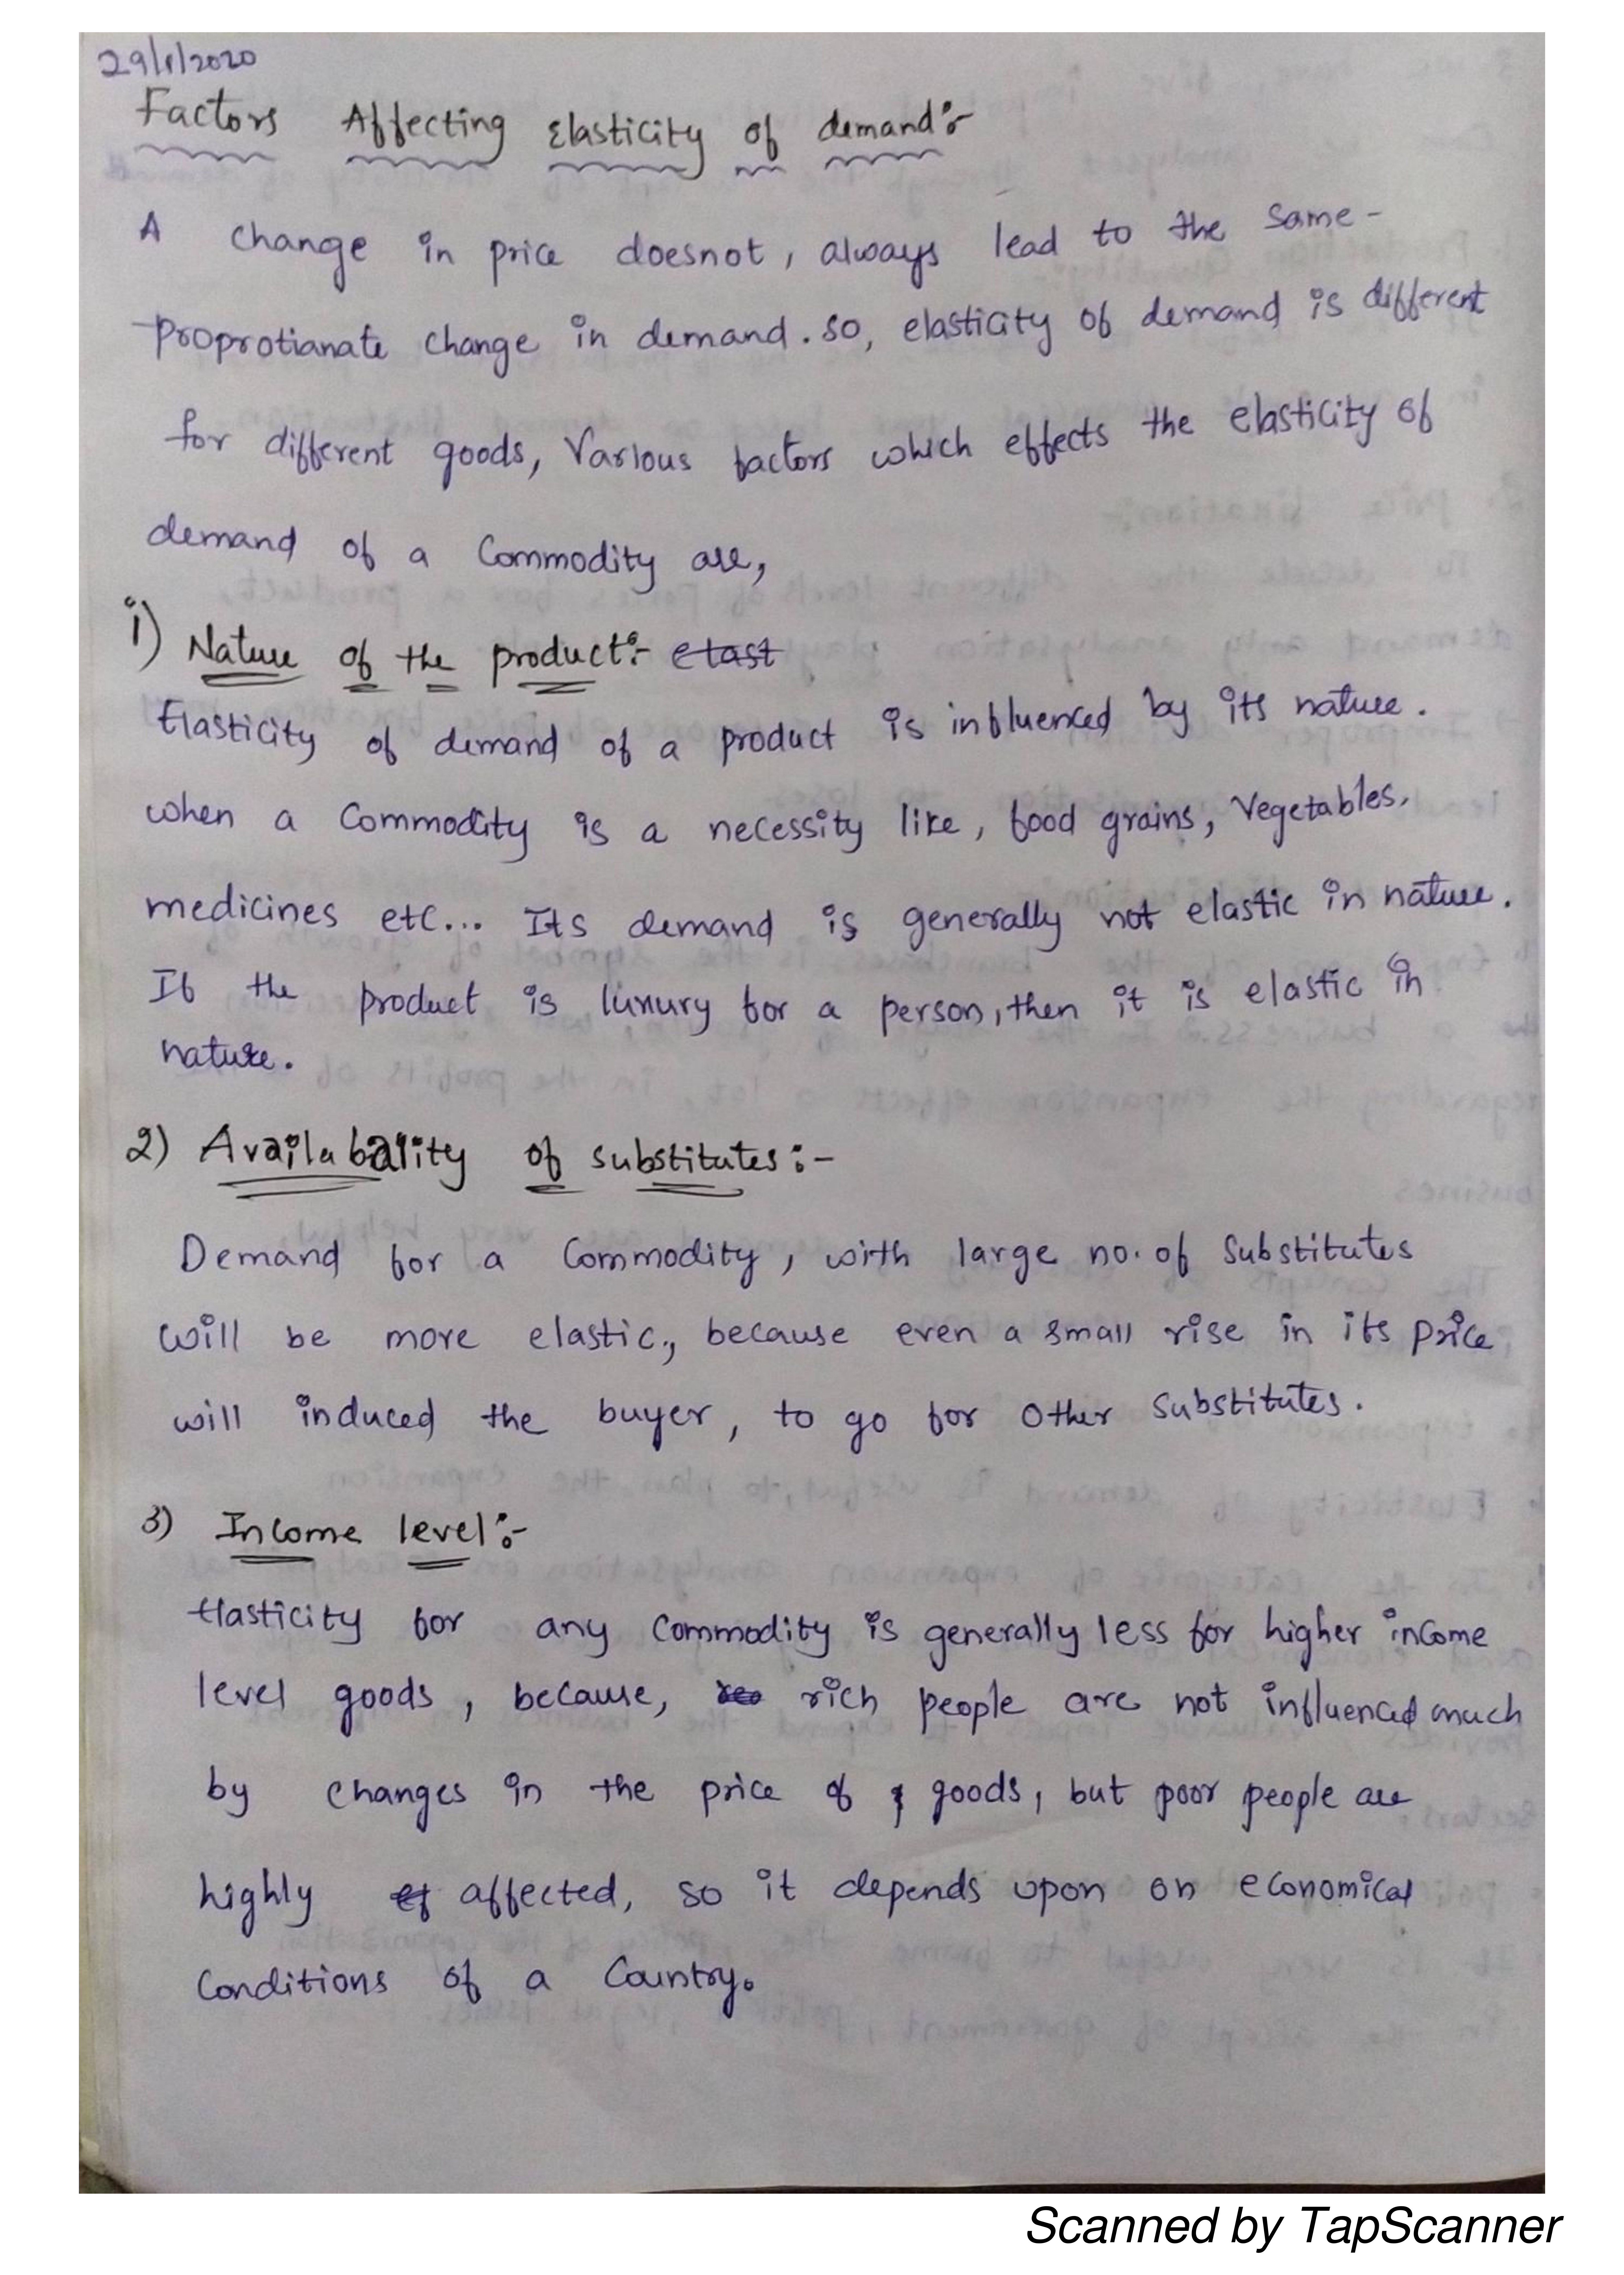 29/1/2020
Factors Affecting Elasticity of demand:-
A change in price doesnot, always lead to the same-
proprotianate change in demand. So, elasticity of demand is different
for different goods, Various factors which effects the elasticity of
demand of a Commodity are,
1) Nature of the product:- elast
Elasticity of demand of a product is influenced by its nature.
when a Commodity is a necessity like, food grains, Vegetables,
medicines etc... Its demand is generally not elastic in nature.
If the product is luxury for a person, then it is elastic in
nature.
2) Availabality of substitutes:-
Demand for a Commodity, with large no. of Substitutes
will be more elastic., because even a small rise in its price
will induced the buyer, to go for Other Substitutes.
3) Income level:-
Elasticity for any Commodity is generally less for higher income
level goods, because, rich people are not influenced much
by changes in the price of goods, but poor people are
highly affected, so it depends upon on economical
Conditions of a Country.
Scanned by TapScanner